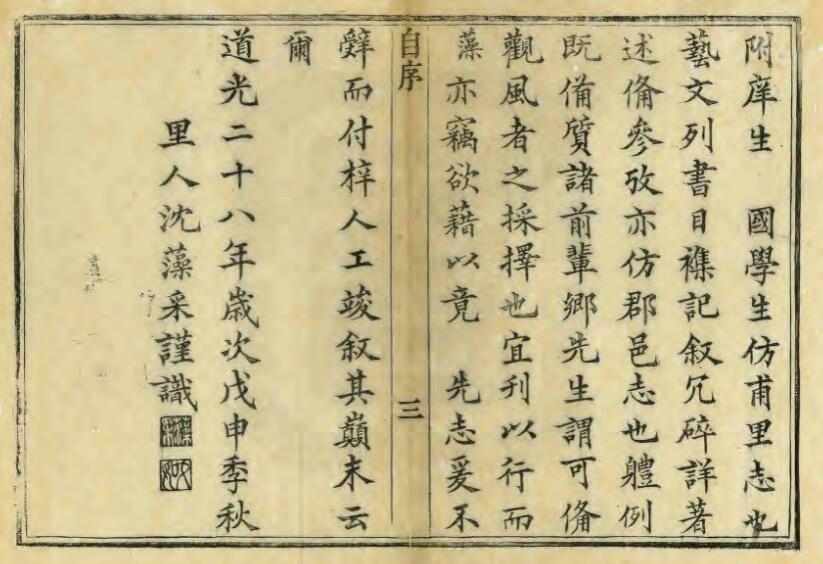 附庠生　國學生仿甫里志也
藝文列書目襍記叙冗碎詳著
述俻參攷亦仿郡邑志也軆例
既俻質諸前輩鄉先生謂可俻
觀風者之採擇也宜刊以行而
藻亦竊欲藉以竟　先志爰不
自序
三
辤而付梓人工竣叙其巔末云
爾
道光二十八年歲次戊申季秋
里人沈藻采謹識